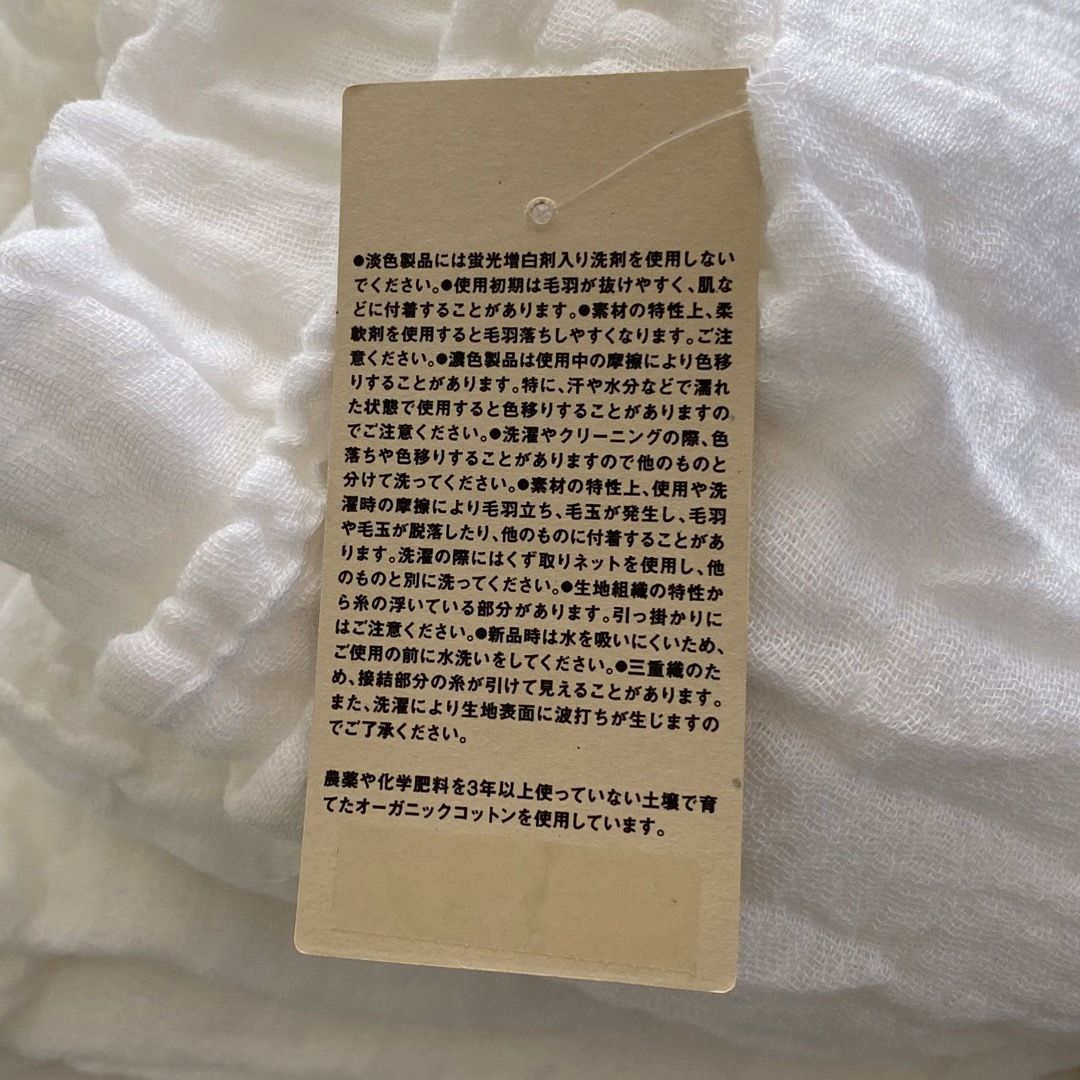 ●淡色製品には蛍光増白剤入り洗剤を使用しない
でください。●使用初期は毛羽が抜けやすく、肌な
どに付着することがあります。●素材の特性上、柔
軟剤を使用すると毛羽落ちしやすくなります。ご注
意ください。●濃色製品は使用中の摩擦により色移
りすることがあります。特に、汗や水分などで濡れ
た状態で使用すると色移りすることがありますの
でご注意ください。●洗濯やクリーニングの際、色
落ちや色移りすることがありますので他のものと
分けて洗ってください。●素材の特性上、使用や洗
濯時の摩擦により毛羽立ち、毛玉が発生し、毛羽
や毛玉が脱落したり、他のものに付着することがあ
ります。洗濯の際にはくず取りネットを使用し、他
のものと別に洗ってください。●生地組織の特性か
ら糸の浮いている部分があります。引っ掛かりに
はご注意ください。●新品時は水を吸いにくいため、
ご使用の前に水洗いをしてください。●三重織のた
め、接結部分の糸が引けて見えることがあります。
また、洗濯により生地表面に波打ちが生じますの
でご了承ください。
農薬や化学肥料を3年以上使っていない土壌で育
てたオーガニックコットンを使用しています。